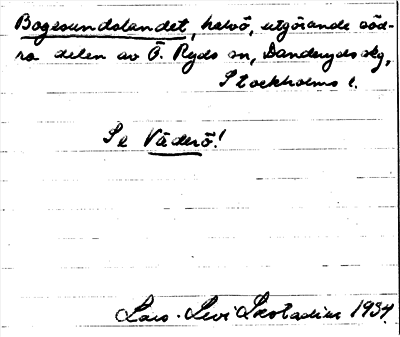 Bogesundslandet, halvö, utgörande söd-
ra delen av Ö. Ryds sn, Danderyds skg,
Stockholms l.
Se Väderö!
Lars-Levi Læstadius 1934.